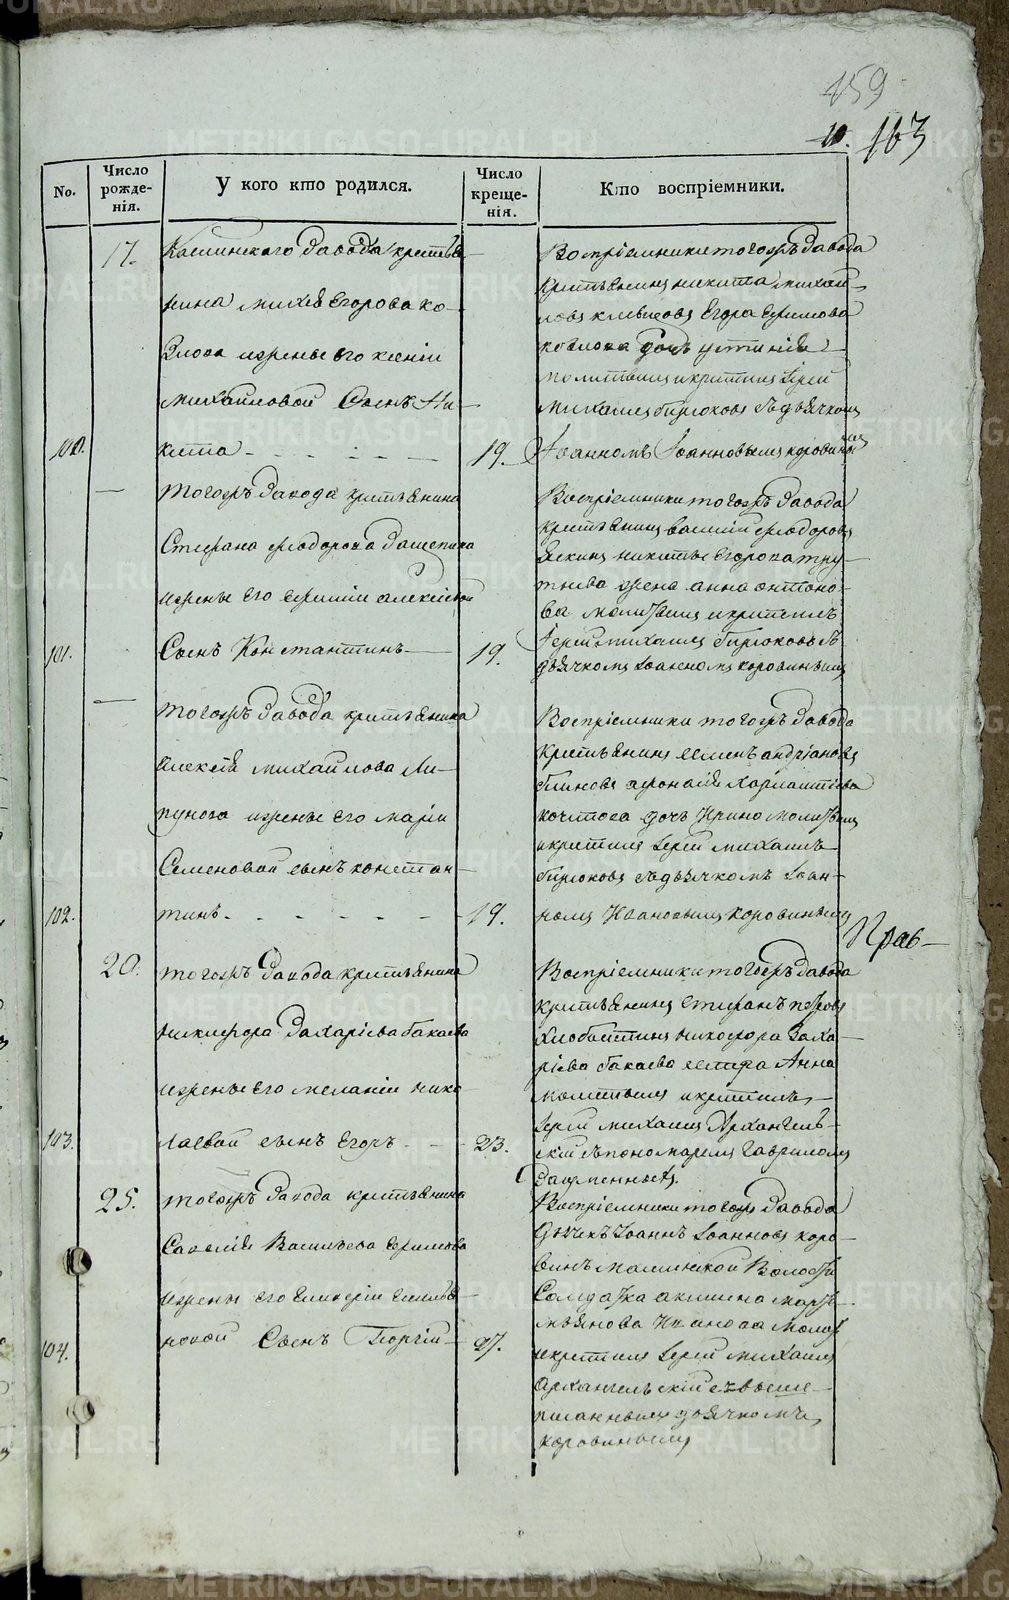 159
10. 163
No.
Число рожде- нія.
У кого кто родился.
Число креще- нія.
Кто воспріемники.
17.
Каслинскаго завода крестья-
нина михея Егорова ко-
злова изжены его ксеніи
михайловой Сынъ Ни-
100.
кита
19.
Воспріемники тогожъ завода
крестьянинъ никита михай-
ловъ Егора Ефимова
козлова дочь устинія
молитвилъ икрестилъ Іерей
михаилъ бирюковъ съдьячкомъ
Іоанномъ Іоанновымъ коровинымъ
—
тогожъ завода крестьянина
Стефана федорова
изжены его алексѣевой
101.
Сынъ Константинъ
19.
Воспріемники тогожъ завода
крестьянинъ василій федоровъ
никиты Егорова тру-
тнева жена анна антоно-
ва молитвилъ икрестилъ
Іерей михаилъ бирюковъ съ
дьячкомъ Іоанномъ коровинымъ
—
тогожъ завода крестьянина
алексѣя михайлова Ли-
пунова изжены его маріи
Семеновой сынъ констан-
102.
тинъ
19.
Воспріемники тогожъ завода
крестьянинъ андріановъ
блиновъ
дочь Ирина молитвилъ
икрестилъ Іерей михаилъ
бирюковъ съдьячкомъ Іоан-
номъ Ивановымъ коровинымъ
Прав—
20.
тогожъ завода крестьянина
никифора Захаріева бакаева
изжены его меланіи нико-
103.
лаевой сынъ Егоръ
23.
Воспріемники тогожъ завода
крестьянинъ Стефанъ петровъ
никифора Заха-
ріева бакаева сестра Анна
молитвилъ икрестилъ
Іерей михаилъ Архангель-
скій съпономаремъ гавриломъ
25.
тогожъ завода крестьянина
Савелія Васильева Ефимова
изжены его
104.
новой Сынъ Георгій
27.
Воспріемники тогожъ завода
Дьячекъ Іоаннъ Іоанновъ коро-
винъ Волости
Солдатка акилина марть-
мьянова Иванова молит.
икрестилъ Іерей михаилъ
Архангельскій свыше-
писаннымъ дьячкомъ
коровинымъ
METRIKI.GASO-URAL.RU